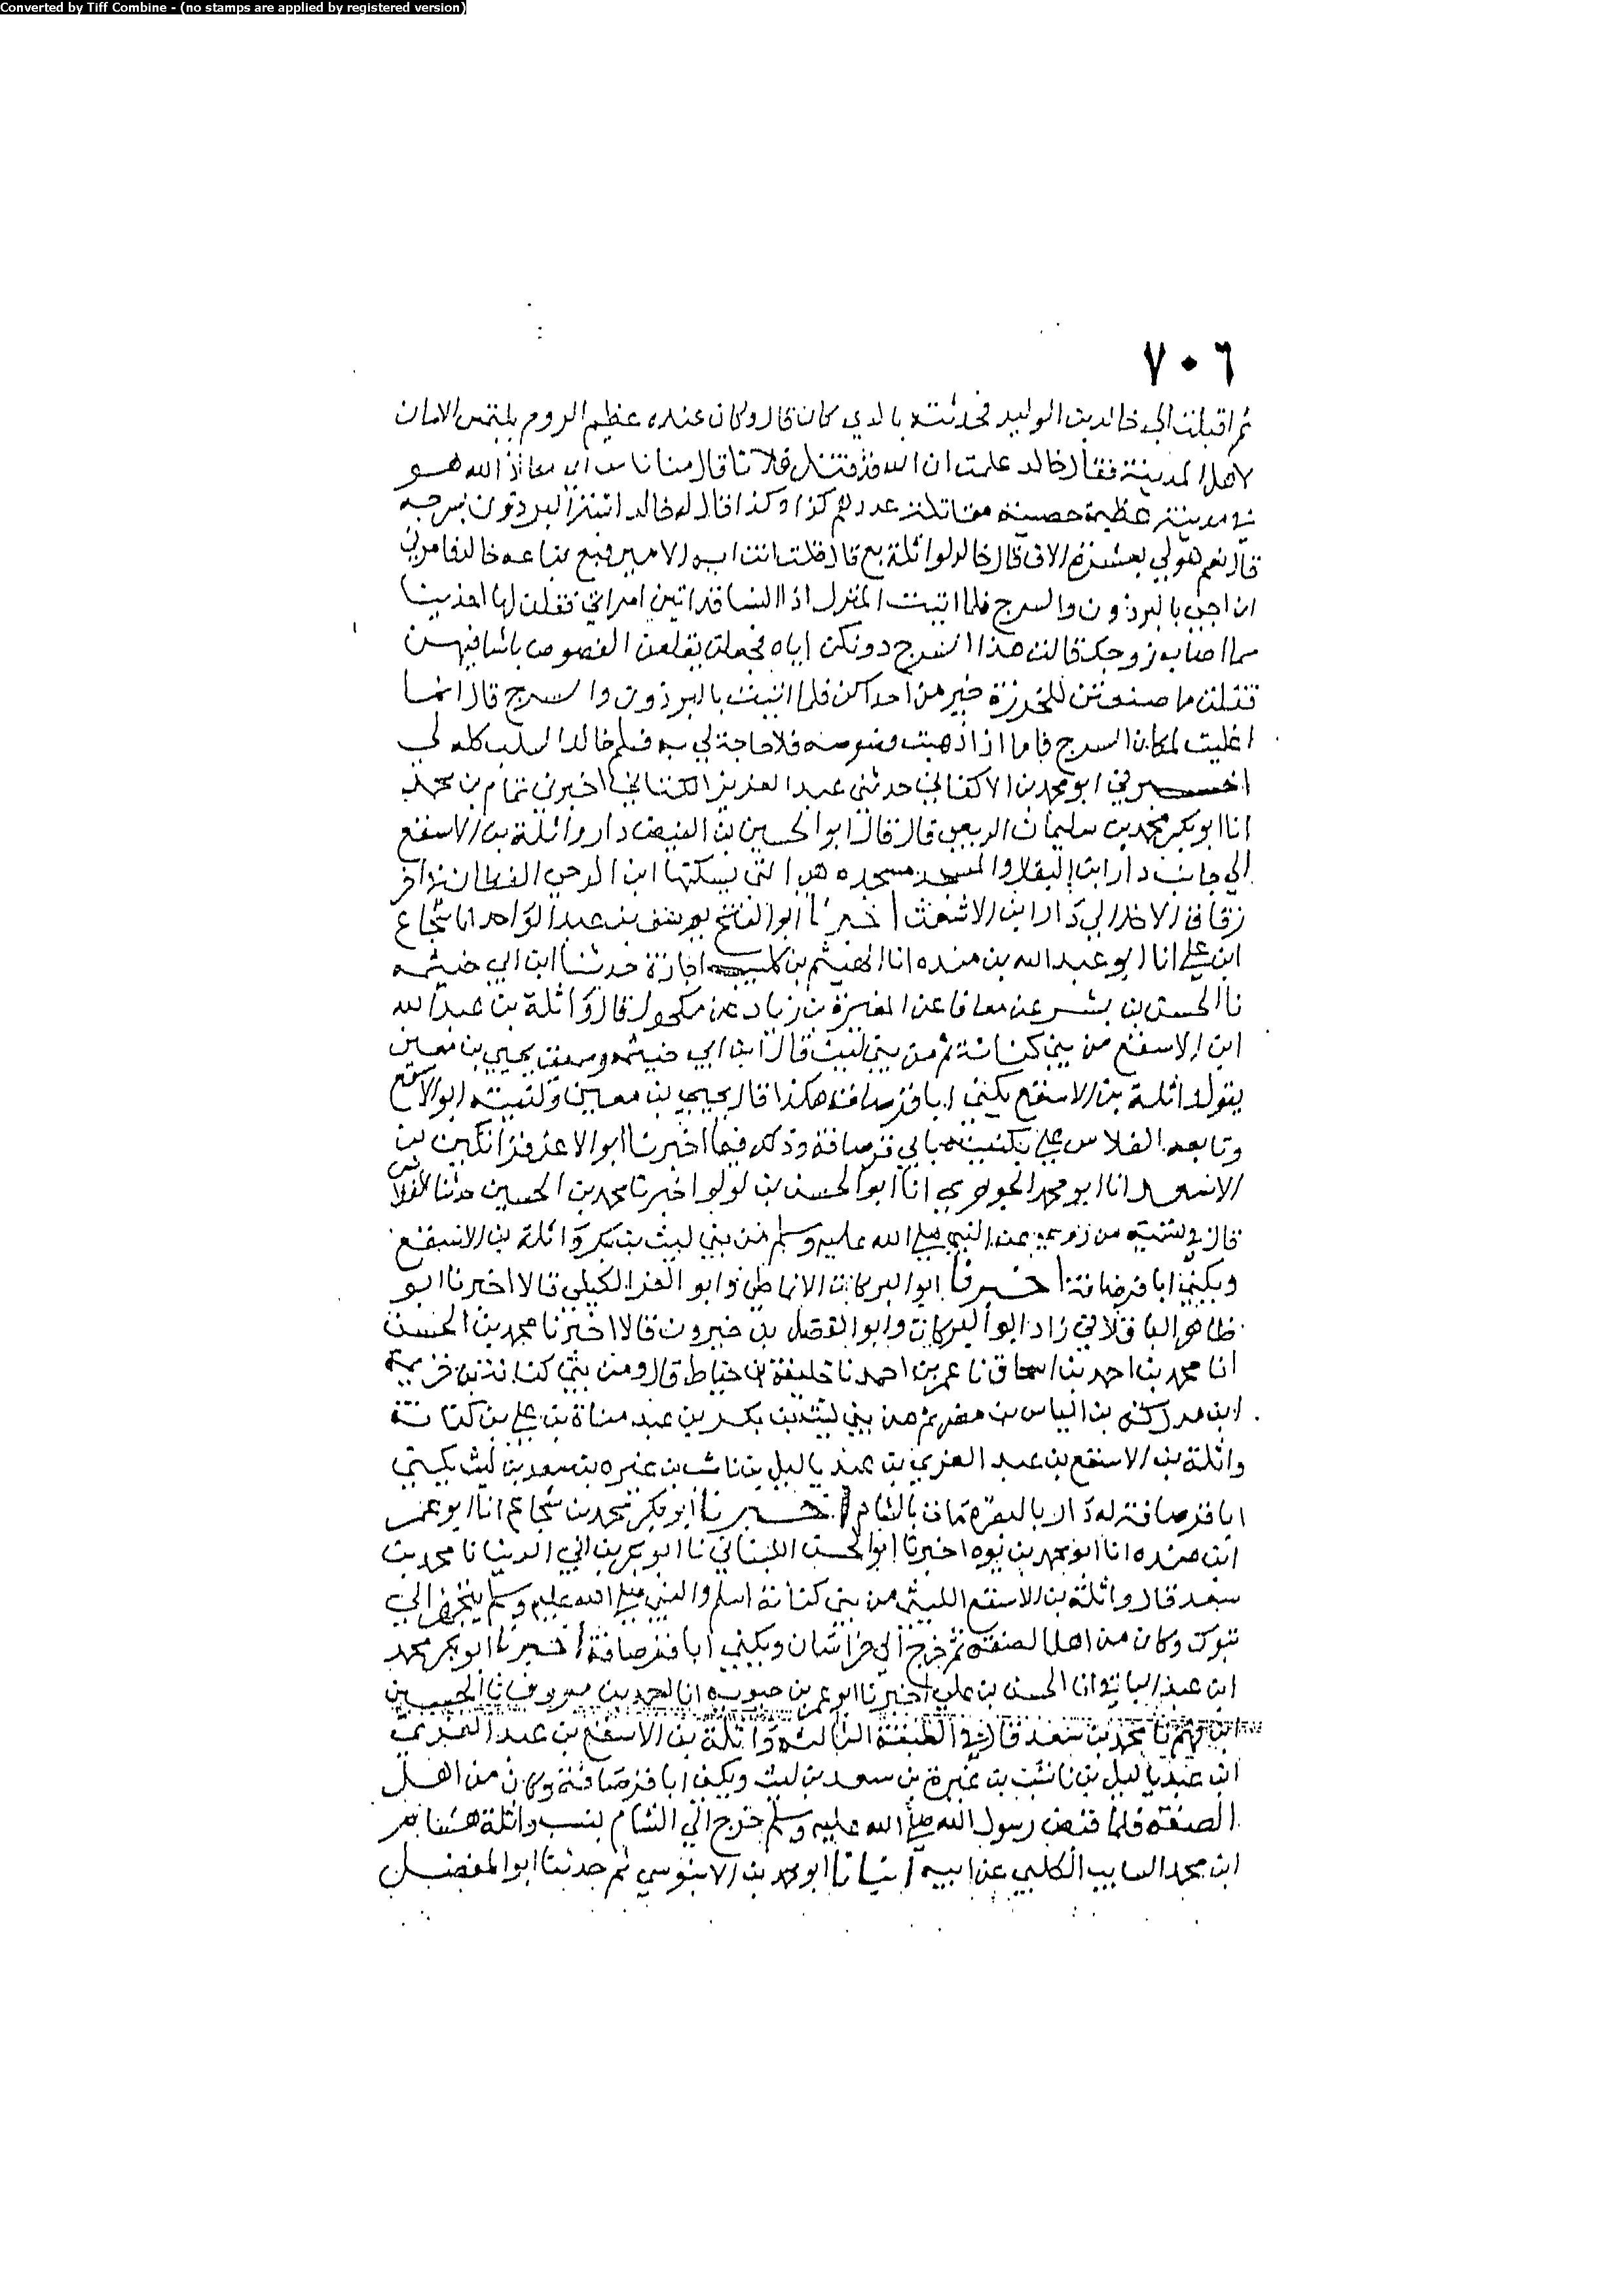 Converted by Tiff Combine - (no stamps are applied by registered version)
٧٠٦
ثم اقبلت الى خالد بن الوليد فحدثته بالذي كان قال وكان عنده عظيم الروم يلتمس الامان
لاهل المدينة فقال خالد علمت ان الله قد قتل فلانا قال مناناس اي معاذ الله هو
في مدينة عظيمة حصينة مقاتلة عددهم كذا وكذا قال له خالد البرذون بسرجه
قال نعم هو لي بعشرة الاف قال خالد لواثلة بع قال قلت انت ايها الامير فبع بناعه خالد فامرني
ان اجي بالبرذون والسرج فلما اتيت المنزل اذا النسا قد اتين امراتي فقلن لها احذينا
مما اصاب زوجك قالت هذا السرج دونكن اياه فجعلن يقلعن الفصوص باشافيهن
فقلت ما صنعتن للخرزة خير من احداكن فلما اتيت بالبرذون والسرج قال انما
اغليت لمكان السرج فاما اذا ذهبت فصوصه فلا حاجة لي به فسلم خالد السلب كله لي
اخبرني ابو محمد بن الاكفاني حدثني عبد العزيز الكتاني اخبرني تمام بن محمد
انا ابو بكر محمد بن سليمان الربعي قال قال ابو الحسين بن الفيض دار واثلة بن الاسقع
الي جانب دار ابن البقلا والمسجد مسجده هذا التي يسكنها ابن القطان في اخر
زقاق الاخذ الي دار ابن الاشعث اخبرنا ابو الفتح يوسف بن عبد الواحد انا شجاع
ابن علي انا ابو عبد الله بن منده انا الهيثم بن كليب اجازة حدثنا ابن ابي خيثمه
نا الحسن بن بشر عن معافا عن المغيرة بن زياد عن مكحول قال واثلة بن عبد الله
ابن الاسقع من بني كنانة ثم من بني ليث قال ابن ابي خيثمه وسمعت يحيي بن معين
يقول واثلة بن الاسقع يكنى ابا قرصافه هكذا قال يحيي بن معين وكنيته ابو الاسقع
وتابعه الفلاس علي تكنيته بابي قرصافة وذلك فيما اخبرنا ابو الاعز قراتكين بن
الاسعد انا ابو محمد الجوهري انا ابو الحسن بن لولو اخبرنا محمد بن الحسين حدثنا الفلاس
قال في تسميه من روى عن النبي صلى الله عليه وسلم من بني ليث بن بكر واثلة بن الاسقع
ويكنى ابا قرصافة اخبرنا ابو البركات الانماطي وابو العز الكيلي قالا اخبرنا ابو
طاهر الباقلاني زاد ابو البركات وابو الفضل بن خيرون قالا اخبرنا محمد بن الحسن
انا محمد بن احمد بن اسحاق نا عمر بن احمد نا خليفة بن خياط قال ومن بني كنانة بن خزيمه
ابن مدركه بن الياس بن مضر ثم من بني ليث بن بكر بن عبد مناة بن علي بن كنانة
واثلة بن الاسقع بن عبد العزي بن عبد ياليل بن ناشب بن عنبره بن سعد بن ليث يكني
ابا قرصافة له دار بالبصرة مات بالشام اخبرنا ابو بكر محمد بن شجاع انا ابو عمر
ابن منده انا ابو محمد بن يوه اخبرنا ابو الحسن اللبناني نا ابو بكر بن ابي الدنيا نا محمد بن
سعد قال واثلة بن الاسقع الليثي من بني كنانة اسلم والنبي صلى الله عليه وسلم يتجهز الي
تبوك وكان من اهل الصفه ثم خرج الي خراسان ويكنى ابا قرصافة اخبرنا ابو بكر محمد
ابن عبد الباقي انا الحسن بن علي اخبرنا ابو عمر بن حيويه انا احمد بن معروف نا الحسين
ابن فهم نا محمد بن سعد قال في الطبقة الثالثه واثلة بن الاسقع بن عبد العزي
ابن عبد ياليل بن ناشب بن غيرة بن سعد بن ليث ويكنى ابا قرصافة وكان من اهل
الصفه فلما قبض رسول الله صلى الله عليه وسلم خرج الي الشام نسب واثلة هشام
ابن محمد السايب الكلبي عن ابيه انبانا ابو محمد بن الابنوسي ثم حدثنا ابو الفضل